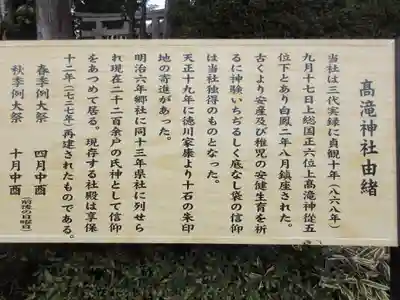 高滝神社由緒
当社は三代実録に貞観十年(八六八年)
九月十七日上総国正六位上高滝神従五
位下とあり白鳳二年八月鎮座された。
古くより安産及び稚児の安健生育を祈
るに神験いちぢるしく底なし袋の信仰
は当社独得のものとなった。
天正十九年に徳川家康より十石の朱印
地の寄進があった。
明治六年郷社に同十三年県社に列せら
れ現在二千二百余戸の氏神として信仰
をあつめて居る。現存する社殿は享保
十二年(一七二七年)再建されたものである。
春季例大祭 四月中酉
秋季例大祭 十月中酉
(前後の日曜日)